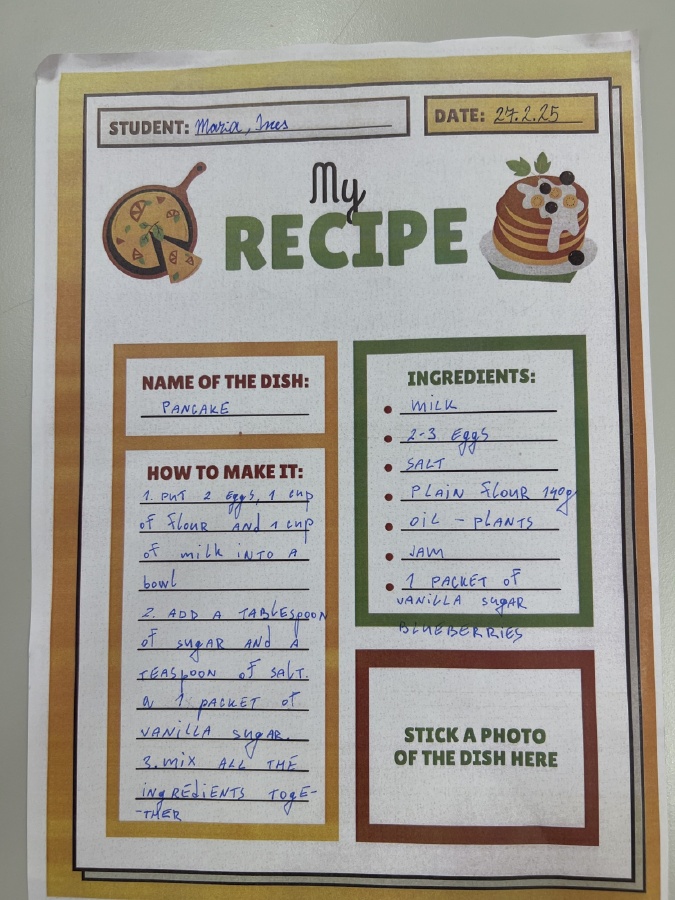 STUDENT: Maria, Ines
DATE: 27.2.25
My
RECIPE
NAME OF THE DISH:
PANCAKE
HOW TO MAKE IT:
1. PUT 2 eggs, 1 cup
of flour AND 1 cup
of milk into A
bowl
2. ADD A TABLESPOON
of sugAR ANd A
TEASPOON of SALT.
a 1 PACKET of
VANILLA sugAR.
3. mix ALL THE
ingREdiENTS TOGE-
-THER
INGREDIENTS:
MILK
2-3 Eggs
SALT
PLAIN flour 140g
OIL - PLANTS
JAM
1 PACKET of
VANILLA sugAR
BLUEBERRIES
STICK A PHOTO
OF THE DISH HERE